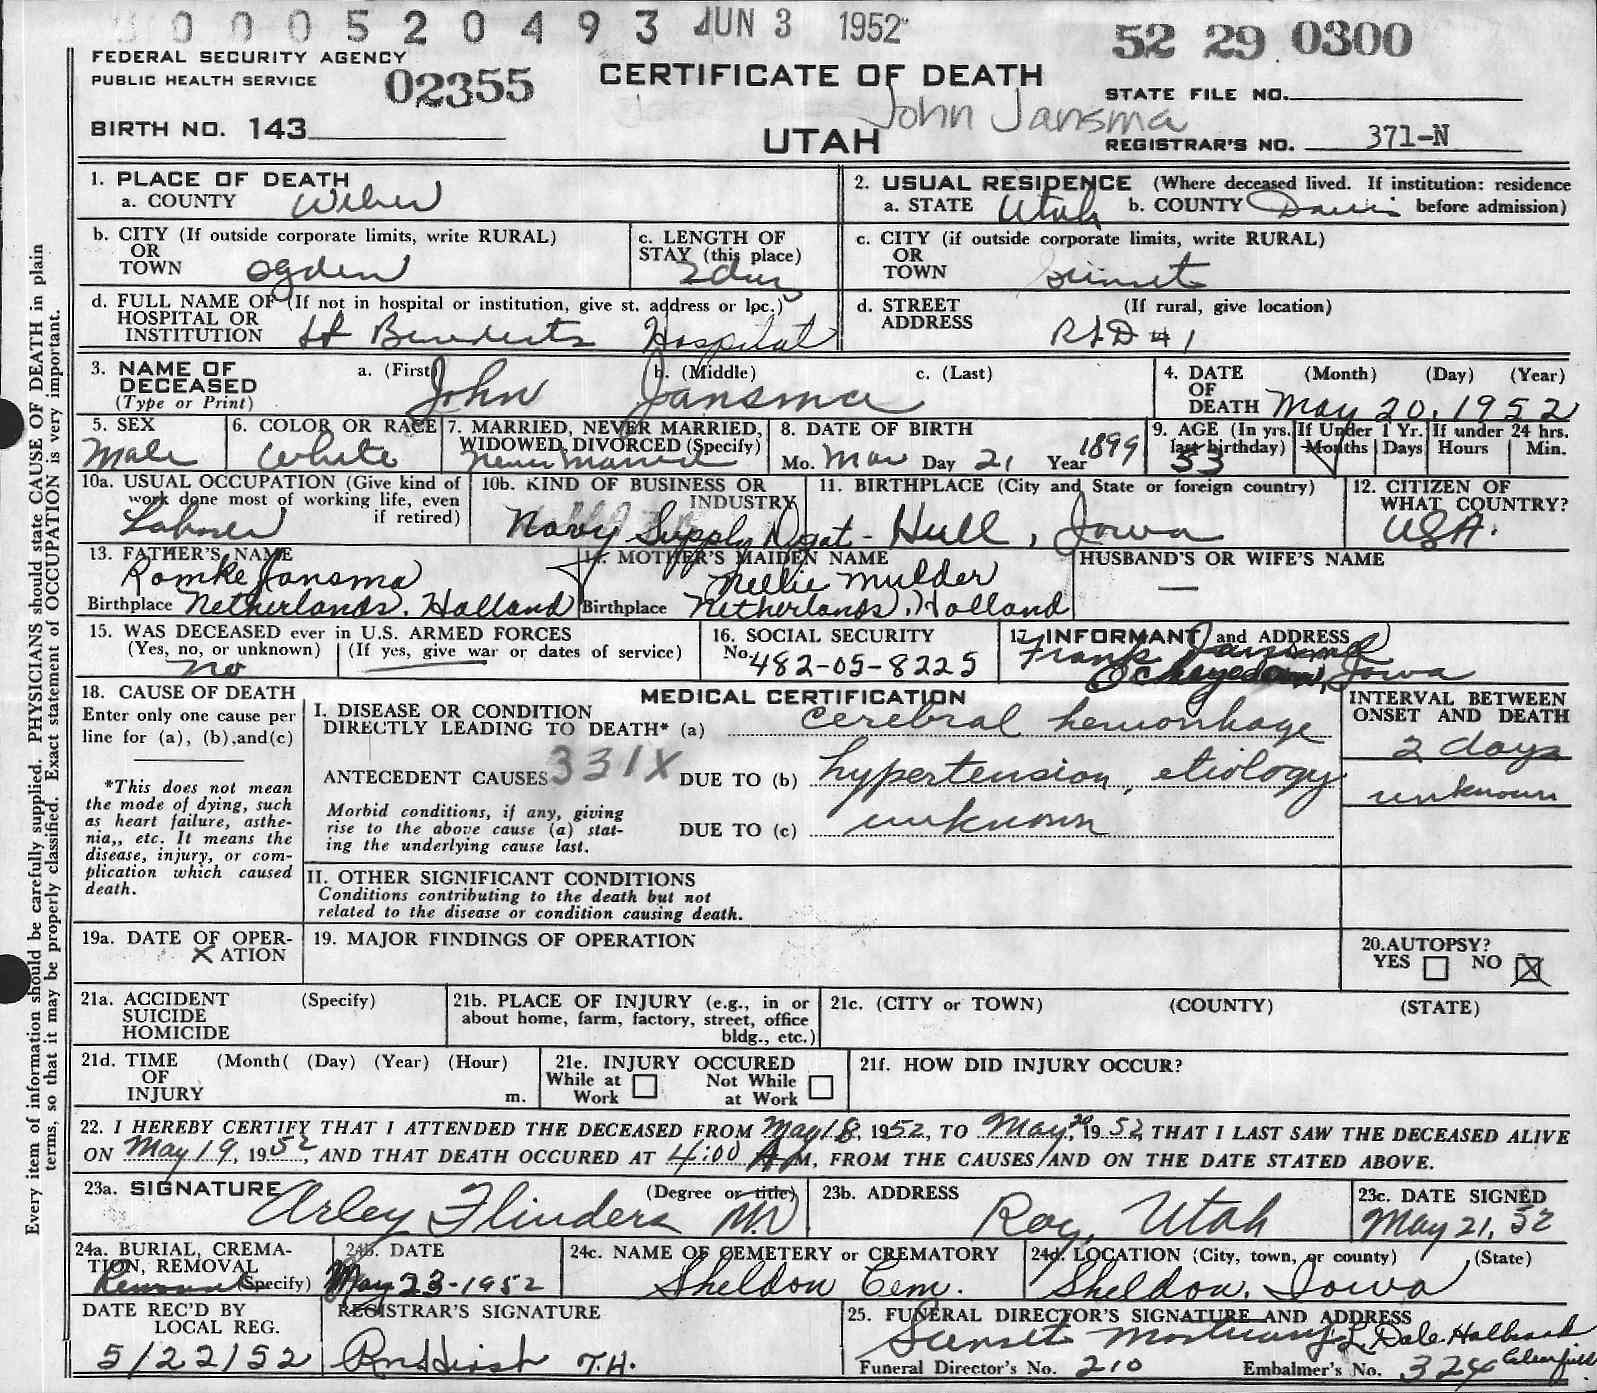 0 0 0 5 2 0 4 9 3 JUN 3 1952
52 29 0300
FEDERAL SECURITY AGENCY
PUBLIC HEALTH SERVICE
02355
CERTIFICATE OF DEATH
STATE FILE NO.
John Jansma
BIRTH NO. 143
UTAH
REGISTRAR'S NO. 371-N
1. PLACE OF DEATH
a. COUNTY Weber
2. USUAL RESIDENCE (Where deceased lived. If institution: residence
a. STATE Utah b. COUNTY Davis before admission)
b. CITY (If outside corporate limits, write RURAL)
OR
TOWN Ogden
c. LENGTH OF
STAY (this place)
2 days
c. CITY (if outside corporate limits, write RURAL)
OR
TOWN Sunset
d. FULL NAME OF (If not in hospital or institution, give st. address or loc.)
HOSPITAL OR
INSTITUTION St Benedicts Hospital
d. STREET (If rural, give location)
ADDRESS RFD #1
3. NAME OF
DECEASED
(Type or Print)
a. (First) b. (Middle) c. (Last)
John Jansma
4. DATE (Month) (Day) (Year)
OF
DEATH May 20, 1952
5. SEX
Male
6. COLOR OR RACE
White
7. MARRIED, NEVER MARRIED,
WIDOWED, DIVORCED (Specify)
Never Married
8. DATE OF BIRTH
Mo. Mar Day 21 Year 1899
9. AGE (In yrs.
last birthday)
53
If Under 1 Yr.
Months Days
If under 24 hrs.
Hours Min.
10a. USUAL OCCUPATION (Give kind of
work done most of working life, even
if retired)
Laborer
10b. KIND OF BUSINESS OR
INDUSTRY
Navy Supply Depot
11. BIRTHPLACE (City and State or foreign country)
Hull, Iowa
12. CITIZEN OF
WHAT COUNTRY?
USA.
13. FATHER'S NAME
Romke Jansma
Birthplace Netherlands, Holland
14. MOTHER'S MAIDEN NAME
Nellie Mulder
Birthplace Netherlands, Holland
HUSBAND'S OR WIFE'S NAME
—
15. WAS DECEASED ever in U.S. ARMED FORCES
(Yes, no, or unknown) (If yes, give war or dates of service)
no
16. SOCIAL SECURITY
No. 482-05-8225
17. INFORMANT and ADDRESS
Frank Jansma
Ocheyedan, Iowa
18. CAUSE OF DEATH
Enter only one cause per
line for (a), (b), and (c)
*This does not mean
the mode of dying, such
as heart failure, asthe-
nia,, etc. It means the
disease, injury, or com-
plication which caused
death.
MEDICAL CERTIFICATION
I. DISEASE OR CONDITION
DIRECTLY LEADING TO DEATH* (a) cerebral hemorrhage
ANTECEDENT CAUSES 331X DUE TO (b) hypertension, etiology
Morbid conditions, if any, giving
rise to the above cause (a) stat-
ing the underlying cause last.
DUE TO (c) unknown
INTERVAL BETWEEN
ONSET AND DEATH
2 days
unknown
II. OTHER SIGNIFICANT CONDITIONS
Conditions contributing to the death but not
related to the disease or condition causing death.
19a. DATE OF OPER-
X ATION
19. MAJOR FINDINGS OF OPERATION
20. AUTOPSY?
YES NO X
21a. ACCIDENT (Specify)
SUICIDE
HOMICIDE
21b. PLACE OF INJURY (e.g., in or
about home, farm, factory, street, office
bldg., etc.)
21c. (CITY or TOWN) (COUNTY) (STATE)
21d. TIME (Month( (Day) (Year) (Hour)
OF
INJURY m.
21e. INJURY OCCURED
While at Not While
Work at Work
21f. HOW DID INJURY OCCUR?
22. I HEREBY CERTIFY THAT I ATTENDED THE DECEASED FROM May 18, 1952, TO May 20, 1952, THAT I LAST SAW THE DECEASED ALIVE
ON May 19, 1952, AND THAT DEATH OCCURED AT 4:00 A M, FROM THE CAUSES AND ON THE DATE STATED ABOVE.
23a. SIGNATURE (Degree or title)
Arley Flinders M.D
23b. ADDRESS
Roy, Utah
23c. DATE SIGNED
May 21, 52
24a. BURIAL, CREMA-
TION, REMOVAL
Removal (Specify)
24b. DATE
May 23-1952
24c. NAME OF CEMETERY or CREMATORY
Sheldon Cem.
24d. LOCATION (City, town, or county) (State)
Sheldon, Iowa
DATE REC'D BY
LOCAL REG.
5/22/52
REGISTRAR'S SIGNATURE
T.H.
25. FUNERAL DIRECTOR'S SIGNATURE AND ADDRESS
Sunset Mortuary L Dale Holbrook
Clearfield
Funeral Director's No. 210 Embalmer's No. 324
Every item of information should be carefully supplied. PHYSICIANS should state CAUSE OF DEATH in plain
terms, so that it may be properly classified. Exact statement of OCCUPATION is very important.